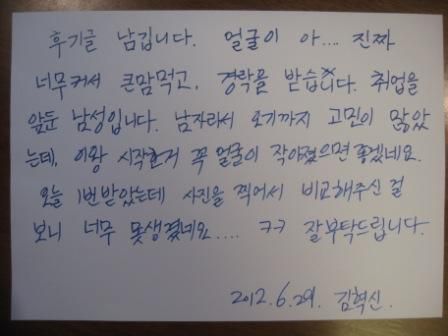 후기글 남깁니다. 얼굴이 아.... 진짜
너무커서 큰맘먹고, 경락을 받습니다. 취업을
앞둔 남성입니다. 남자라서 오기까지 고민이 많았
는데, 이왕 시작한거 꼭 얼굴이 작아졌으면 좋겠네요.
오늘 1번받았는데 사진을 찍어서 비교해주신 걸
보니 너무 못생겼네요.... ㅋㅋ 잘부탁드립니다.
2012.6.29. 김혁신.